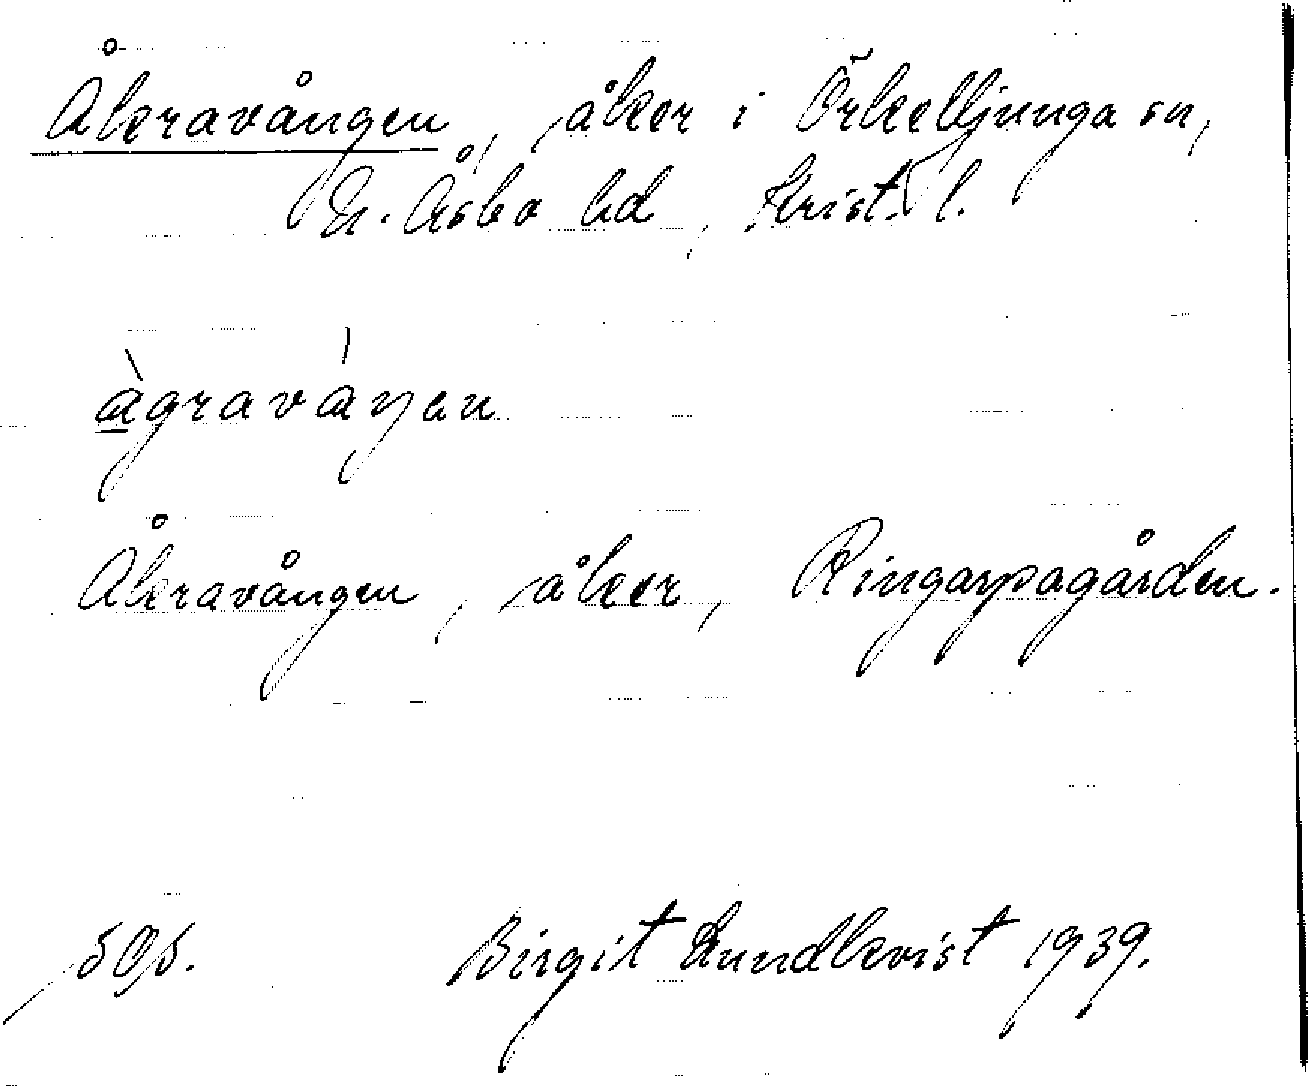 Åkravången, åker i Örkelljunga sn,
N. Åsbo hd, Krist. l.
àgraváŋen
Åkravången, åker, Ringarpagården.
Birgit Lundkvist 1939.